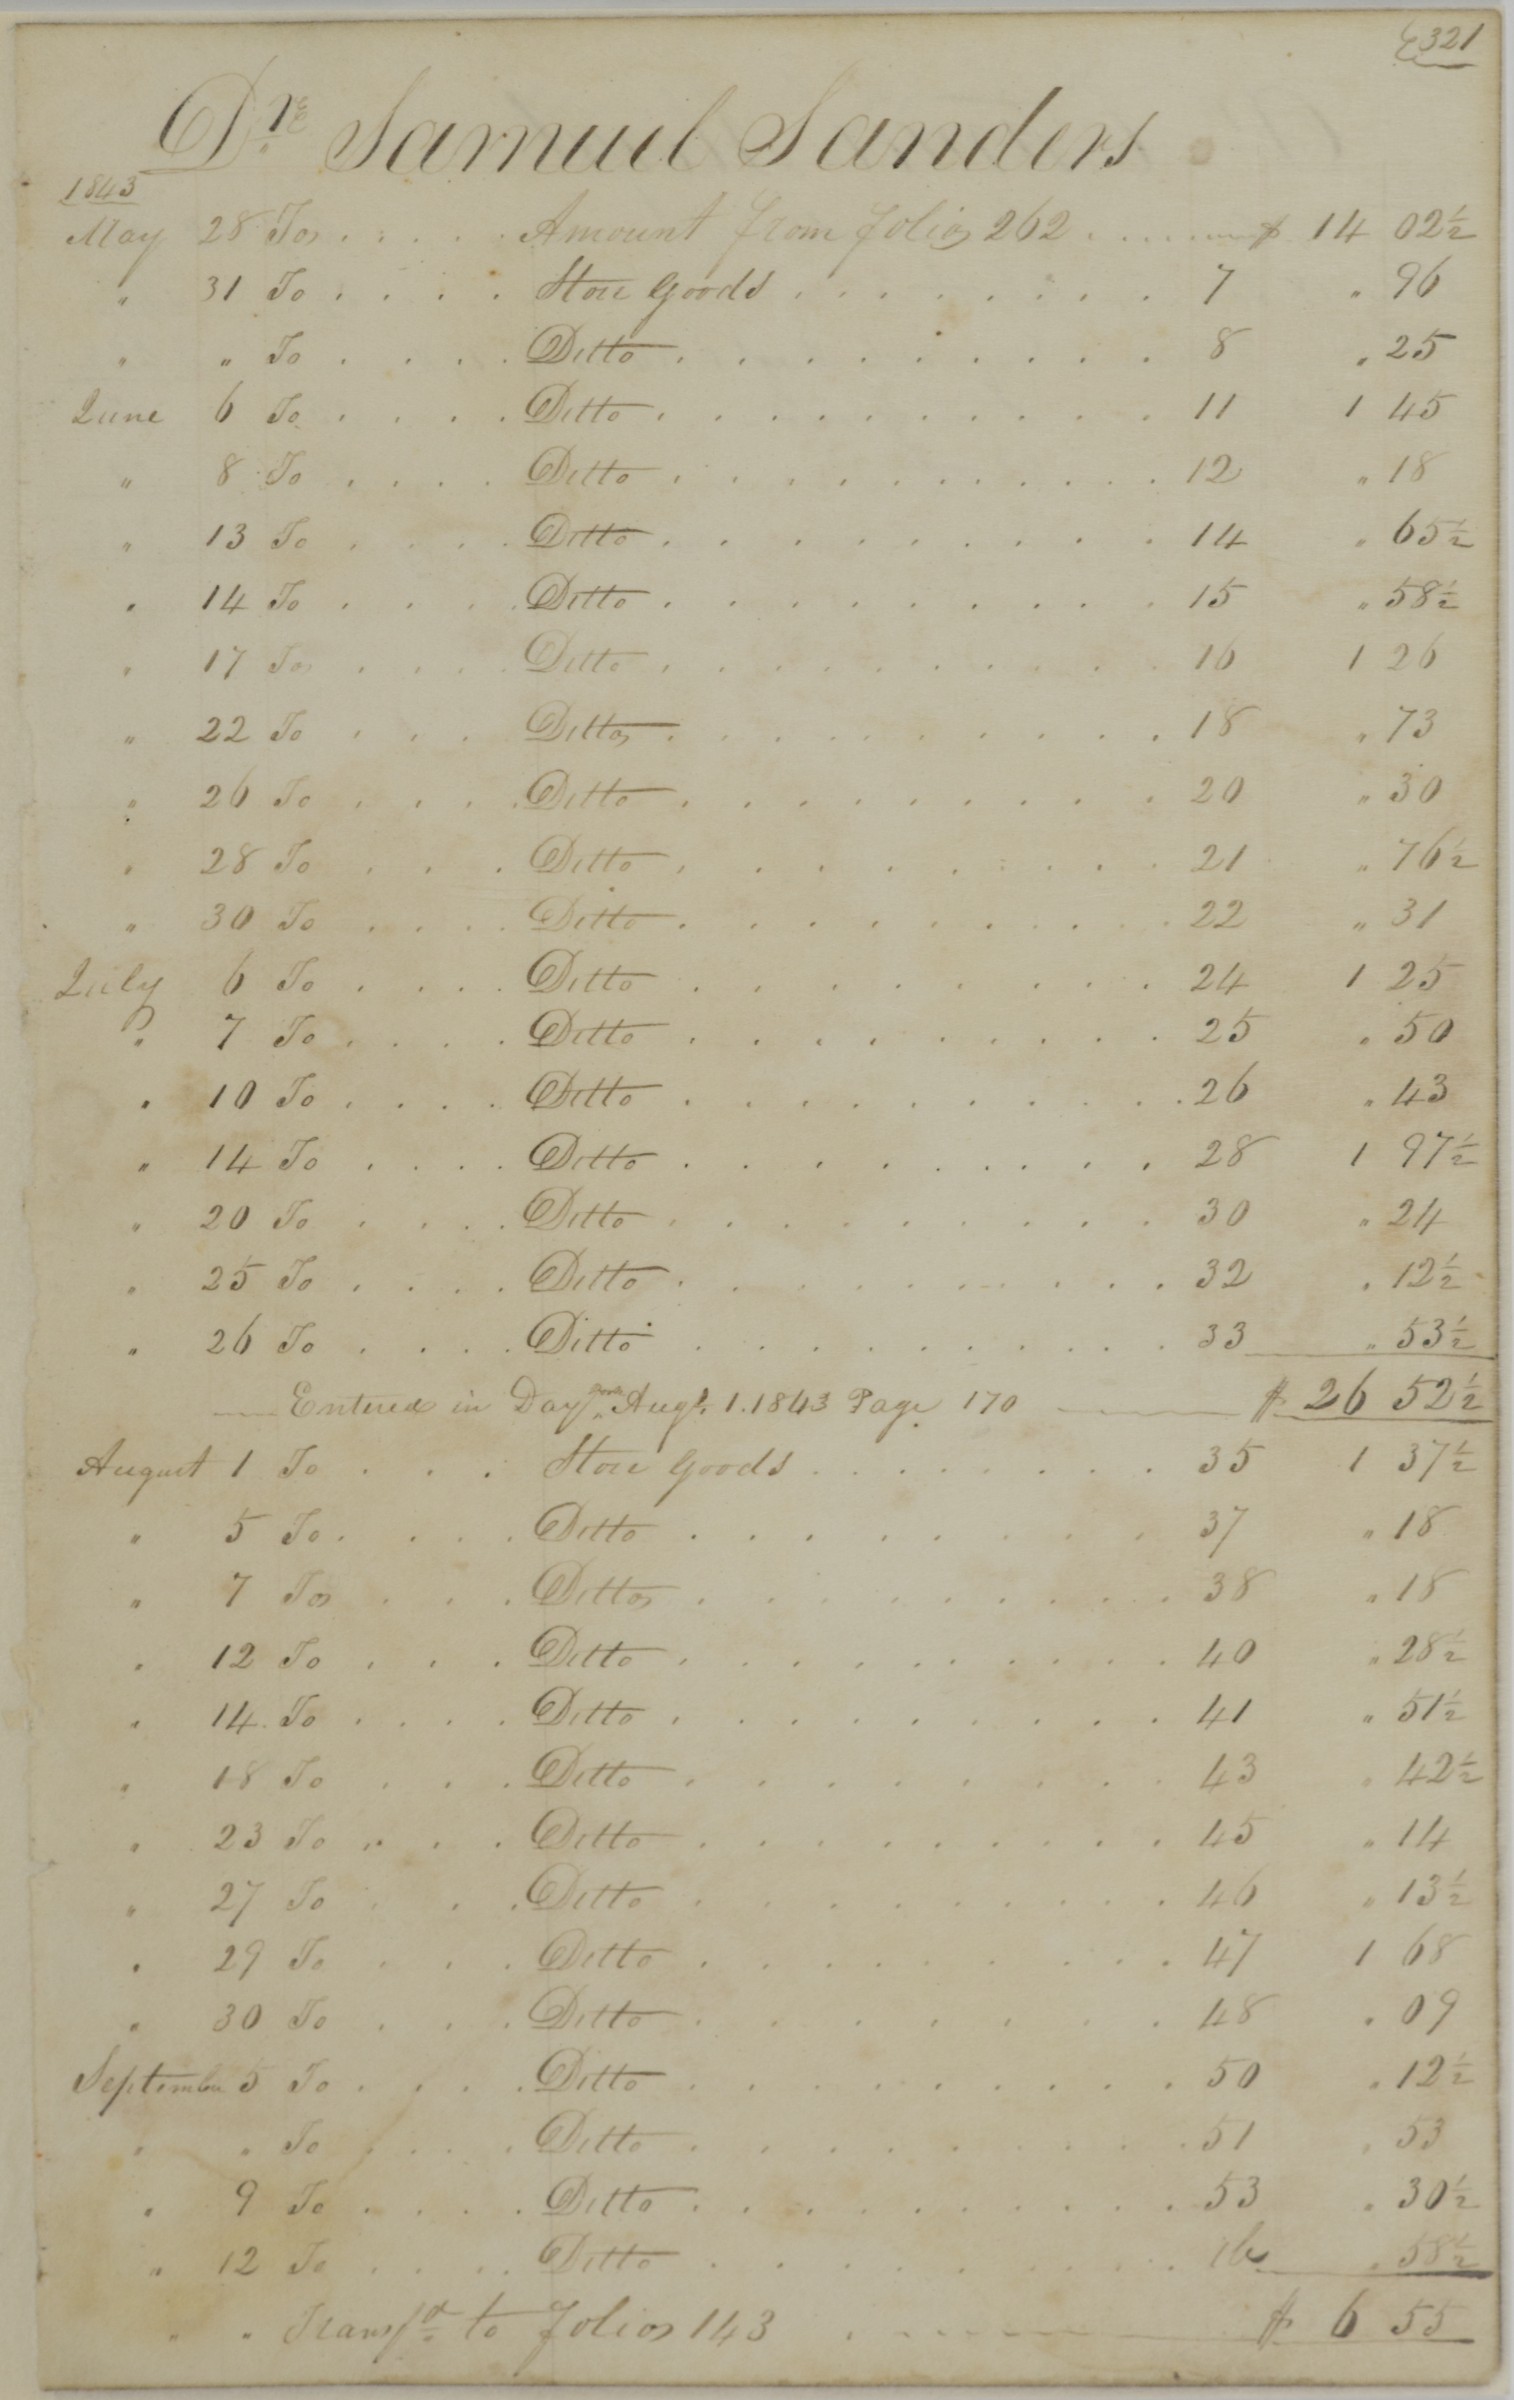 321
Dr. Samuel Sanders
1843
May 28 To . . . . . Amount from folio 262 . . . . . $ 14 02½
" 31 To . . . . Store Goods . . . . . . . . 7 " 96
" " To . . . . Ditto . . . . . . . . . . 8 " 25
June 6 To . . . . Ditto . . . . . . . . . . 11 1 45
" 8 To . . . . Ditto . . . . . . . . . . 12 " 18
" 13 To . . . . Ditto . . . . . . . . . . 14 " 65½
" 14 To . . . . Ditto . . . . . . . . . . 15 " 58½
" 17 To . . . . Ditto . . . . . . . . . . 16 1 26
" 22 To . . . Ditto . . . . . . . . . . 18 " 73
" 26 To . . . . Ditto . . . . . . . . . . 20 " 30
" 28 To . . . Ditto . . . . . . . . . . 21 " 76½
" 30 To . . . . Ditto . . . . . . . . . . 22 " 31
July 6 To . . . . Ditto . . . . . . . . . 24 1 25
" 7 To . . . . Ditto . . . . . . . . . . 25 " 50
" 10 To . . . . Ditto . . . . . . . . . . 26 " 43
" 14 To . . . . Ditto . . . . . . . . . . 28 1 97½
" 20 To . . . . Ditto . . . . . . . . . . 30 " 24
" 25 To . . . . Ditto . . . . . . . . . . 32 " 12½
" 26 To . . . . Ditto . . . . . . . . . . 33 " 53½
Entered in Day Book Augt. 1. 1843 Page 170 $ 26 52½
August 1 To . . . Store Goods . . . . . . . . 35 1 37½
" 5 To . . . . Ditto . . . . . . . . . 37 " 18
" 7 To . . . Ditto . . . . . . . . . . 38 " 18
" 12 To . . . Ditto . . . . . . . . . . 40 " 28½
" 14 To . . . . Ditto . . . . . . . . . . 41 " 51½
" 18 To . . . Ditto . . . . . . . . . . 43 " 42½
" 23 To . . . Ditto . . . . . . . . . . 45 " 14
" 27 To . . . Ditto . . . . . . . . . . 46 " 13½
" 29 To . . . Ditto . . . . . . . . . . 47 1 68
" 30 To . . . Ditto . . . . . . . . . 48 " 09
September 5 To . . . . Ditto . . . . . . . . . . 50 " 12½
" " To . . . . Ditto . . . . . . . . . . 51 " 53
" 9 To . . . . Ditto . . . . . . . . . . 53 " 30½
" 12 To . . . . Ditto . . . . . . . . . . ib " 58½
" " Transfd. to folio 143 . . . . . $ 6 55